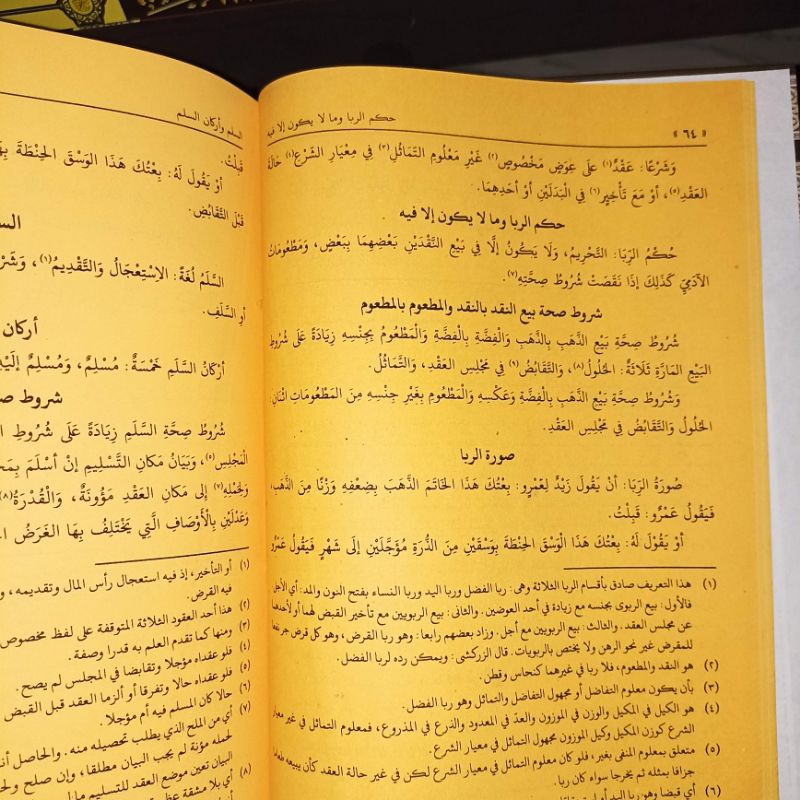 حكم الربا وما لا يكون إلا فيه
« ٦٤ »
وَشَرْعًا: عَقْدٌ(١) عَلَى عِوَضٍ مَخْصُوصٍ(٢) غَيْرِ مَعْلُومِ التَّمَاثُلِ(٣) فِي مِعْيَارِ الشَّرْعِ(٤) حَالَةَ
العَقْدِ(٥)، أَوْ مَعَ تَأْخِيرٍ(٦) فِي الْبَدَلَيْنِ أَوْ أَحَدِهِمَا.
حكم الربا وما لا يكون إلا فيه
حُكْمُ الرِّبَا: التَّحْرِيمُ، وَلَا يَكُونُ إِلَّا فِي بَيْعِ النَّقْدَيْنِ بَعْضِهِمَا بِبَعْضٍ، وَمَطْعُومَاتِ
الآدَمِيِّ كَذَلِكَ إِذَا نَقَصَتْ شُرُوطُ صِحَّتِهِ(٧).
شروط صحة بيع النقد بالنقد والمطعوم بالمطعوم
شُرُوطُ صِحَّةِ بَيْعِ الذَّهَبِ بِالذَّهَبِ وَالْفِضَّةِ بِالْفِضَّةِ وَالْمَطْعُومِ بِجِنْسِهِ زِيَادَةً عَلَى شُرُوطِ
البَيْعِ المَارَّةِ ثَلَاثَةٌ: الحُلُولُ(٨)، وَالتَّقَابُضُ(٩) فِي مَجْلِسِ العَقْدِ، وَالتَّمَاثُلُ.
وَشُرُوطُ صِحَّةِ بَيْعِ الذَّهَبِ بِالْفِضَّةِ وَعَكْسِهِ وَالْمَطْعُومِ بِغَيْرِ جِنْسِهِ مِنَ المَطْعُومَاتِ اثْنَانِ:
الحُلُولُ وَالتَّقَابُضُ فِي مَجْلِسِ العَقْدِ.
صورة الربا
صُورَةُ الرِّبَا: أَنْ يَقُولَ زَيْدٌ لِعَمْرٍو: بِعْتُكَ هَذَا الخَاتَمَ الذَّهَبَ بِضِعْفِهِ وَزْنًا مِنَ الذَّهَبِ،
فَيَقُولَ عَمْرٌو: قَبِلْتُ.
أَوْ يَقُوْلَ لَهُ: بِعْتُكَ هَذَا الْوَسْقَ الحِنْطَةَ بِوَسْقَيْنِ مِنَ الذُّرَةِ مُؤَجَّلَيْنِ إِلَى شَهْرٍ فَيَقُولَ عَمْرٌو
(١) هذا التعريف صادق بأقسام الربا الثلاثة وهى: ربا الفضل وربا اليد وربا النساء بفتح النون والمد: أي الأجل
فالأول: بيع الربوى بجنسه مع زيادة في أحد العوضين. والثانى: بيع الربويين مع تأخير القبض لهما أو لأحدهما
عن مجلس العقد. والثالث: بيع الربويين مع أجل. وزاد بعضهم رابعا: وهو ربا القرض، وهو كل قرض جر نفعا
للمقرض غير نحو الرهن ولا يختص بالربويات. قال الزركشى: ويمكن رده لربا الفضل.
(٢) هو النقد والمطعوم، فلا ربا في غيرهما كنحاس وقطن.
(٣) بأن يكون معلوم التفاضل أو مجهول التفاضل والتماثل وهو ربا الفضل.
(٤) هو الكيل في المكيل والوزن في الموزون والعدّ في المعدود والذرع في المذروع، فمعلوم التماثل في غير معيار
الشرع كوزن المكيل وكيل الموزون مجهول التماثل في معيار الشرع.
(٥) متعلق بمعلوم المنفى بغير، فلو كان معلوم التماثل في معيار الشرع لكن في غير حالة العقد كأن يبيعه طعاما
جزافا بمثله ثم يخرجا سواء كان ربا.
(٦) أي قبضا وهو ربا اليد أو
السلم وأركان السلم
قَبِلْتُ.
أَوْ يَقُولَ لَهُ: بِعْتُكَ هَذَا الْوَسْقَ الحِنْطَةَ
قَبْلَ التَّقَابُضِ.
السَّلَمُ لُغَةً: الاِسْتِعْجَالُ وَالتَّقْدِيمُ(١)،
أَوِ السَّلَفِ.
أركان
أَرْكَانُ السَّلَمِ خَمْسَةٌ: مُسْلِمٌ، وَمُسْلَمٌ إِلَيْهِ
شروط
شُرُوطُ صِحَّةِ السَّلَمِ زِيَادَةً عَلَى شُرُوطِ
المَجْلِسِ(٥)، وَبَيَانُ مَكَانِ التَّسْلِيمِ إِنْ أَسْلَمَ
وَلِحَمْلِهِ(٧) إِلَى مَكَانِ العَقْدِ مَؤُونَةٌ، وَالْقُدْرَةُ(٨)
وَعَدْلَيْنِ بِالْأَوْصَافِ الَّتِي يَخْتَلِفُ بِهَا الغَرَضُ
(١) أو التأخير، إذ فيه استعجال رأس المال وتقديمه،
فيه القرض.
(٢) هذا أحد العقود الثلاثة المتوقفة على لفظ مخصوص
(٣) ومنها كما تقدم العلم به قدرا وصفة.
(٤) فلو عقداه مؤجلا وتقابضا في المجلس لم يصح.
(٥) فلو عقداه حالا وتفرقا أو ألزما العقد قبل القبض
(٦) حالا كان المسلم فيه أم مؤجلا.
(٧) أي من المحل الذي يطلب تحصيله منه. والحاصل
لحمله مؤنة لم يجب البيان مطلقا، وإن صلح
البيان تعين موضع العقد للتسليم
(٨) أي بلا مشقة